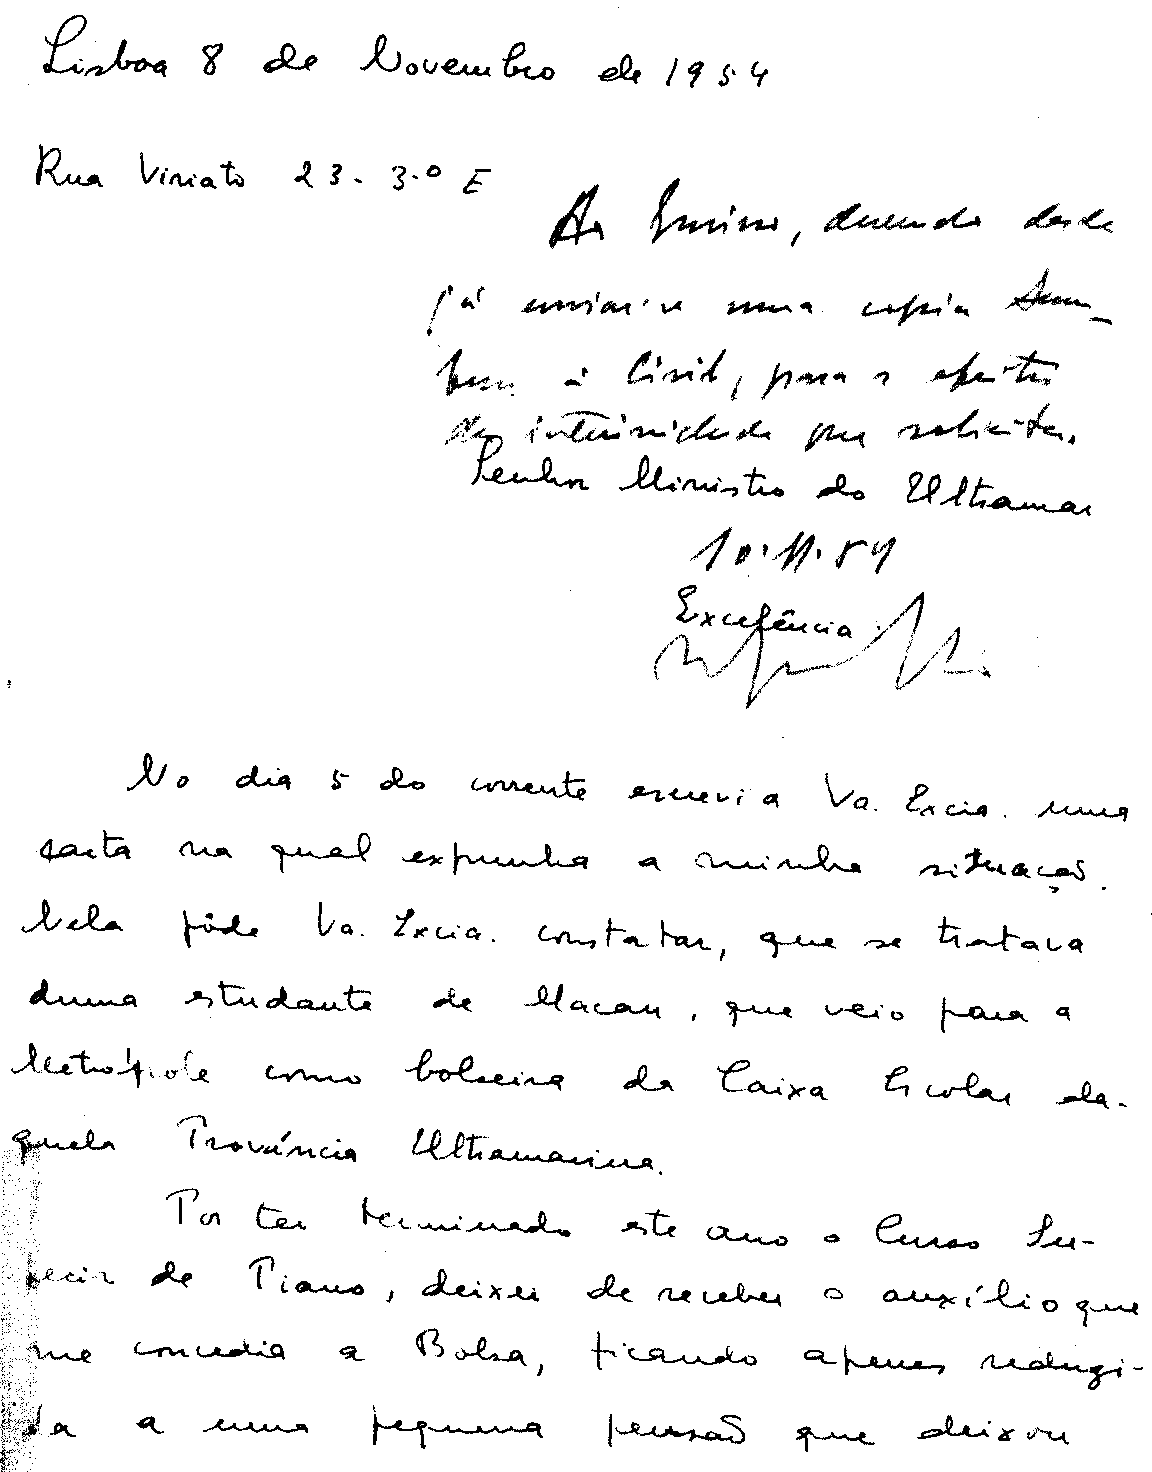 Lisboa 8 de Novembro de 1954
Rua Viriato 23-3.º E
Ao Ensino, devendo desde
já enviar-se uma copia tam-
bem à Civil, para o efeito
da interinidade que solicita.
Senhor Ministro do Ultramar
10.11.54
Excelência
No dia 5 do corrente escrevi a Va. Excia. uma
carta na qual expunha a minha situação.
Nela pôde Va. Excia. constatar, que se tratava
duma estudante de Macau, que veio para a
Metrópole como bolseira da Caixa Escolar da-
quela Província Ultramarina.
Por ter terminado este ano o Curso Su-
perior de Piano, deixei de receber o auxílio que
me concedia a Bolsa, ficando apenas reduzi-
da a uma pequena pensão que deixou